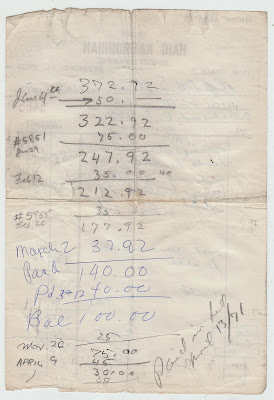 372.92
Jan 4th 50.
322.92
#5851 75.00
Jan 29
247.92
Feb 12 35.00
212.92
#5955 35
Feb 26
177.92
March 2 37.92
Paid 140.00
Pd 3-12 40.00
Bal 100.00
25
Mar. 26 75.00
APRIL 9 45
30.00
Paid in full
13/71